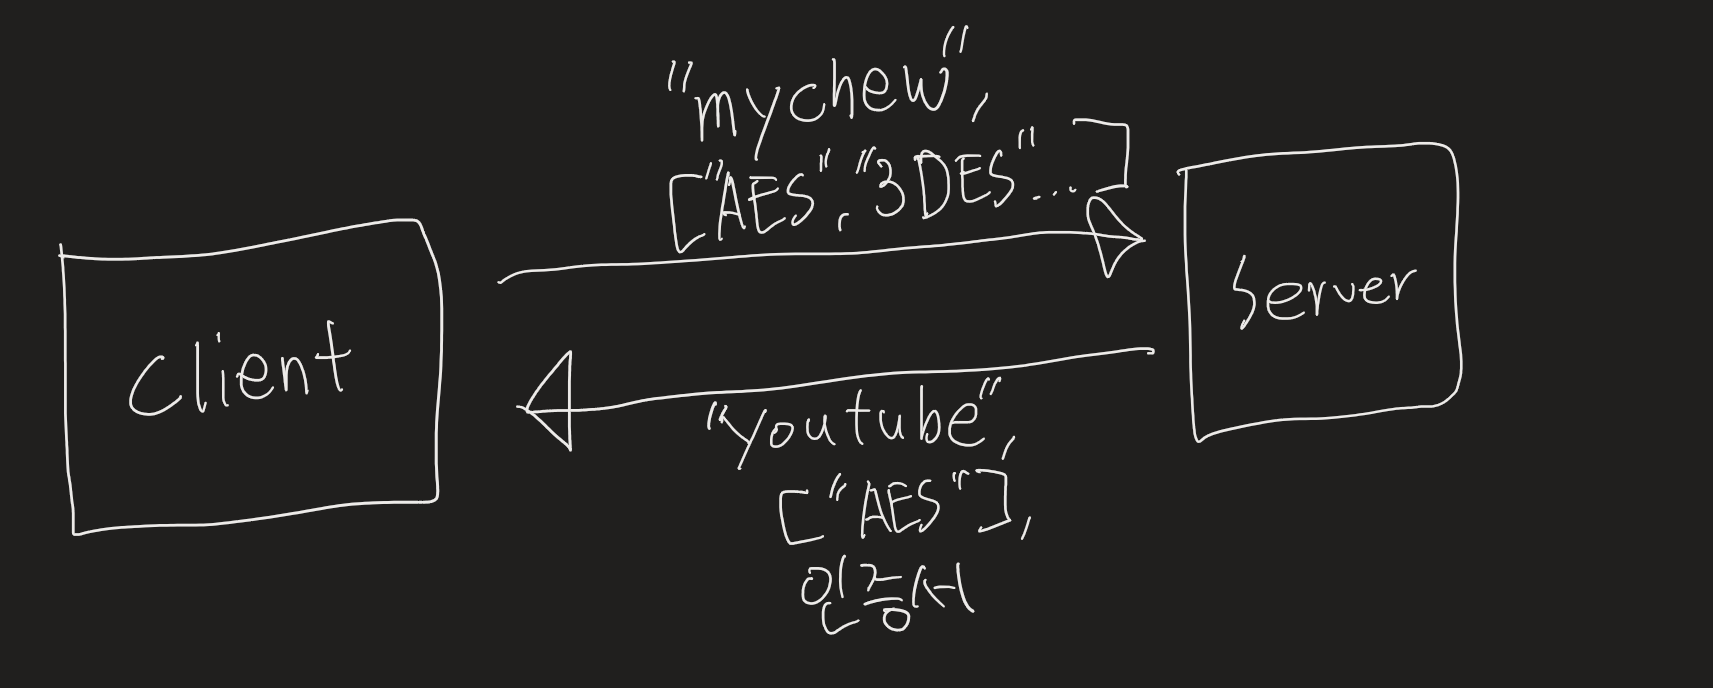 "mychew",
["AES", "3DES"...]
Client
Server
"youtube",
["AES"],
인증서